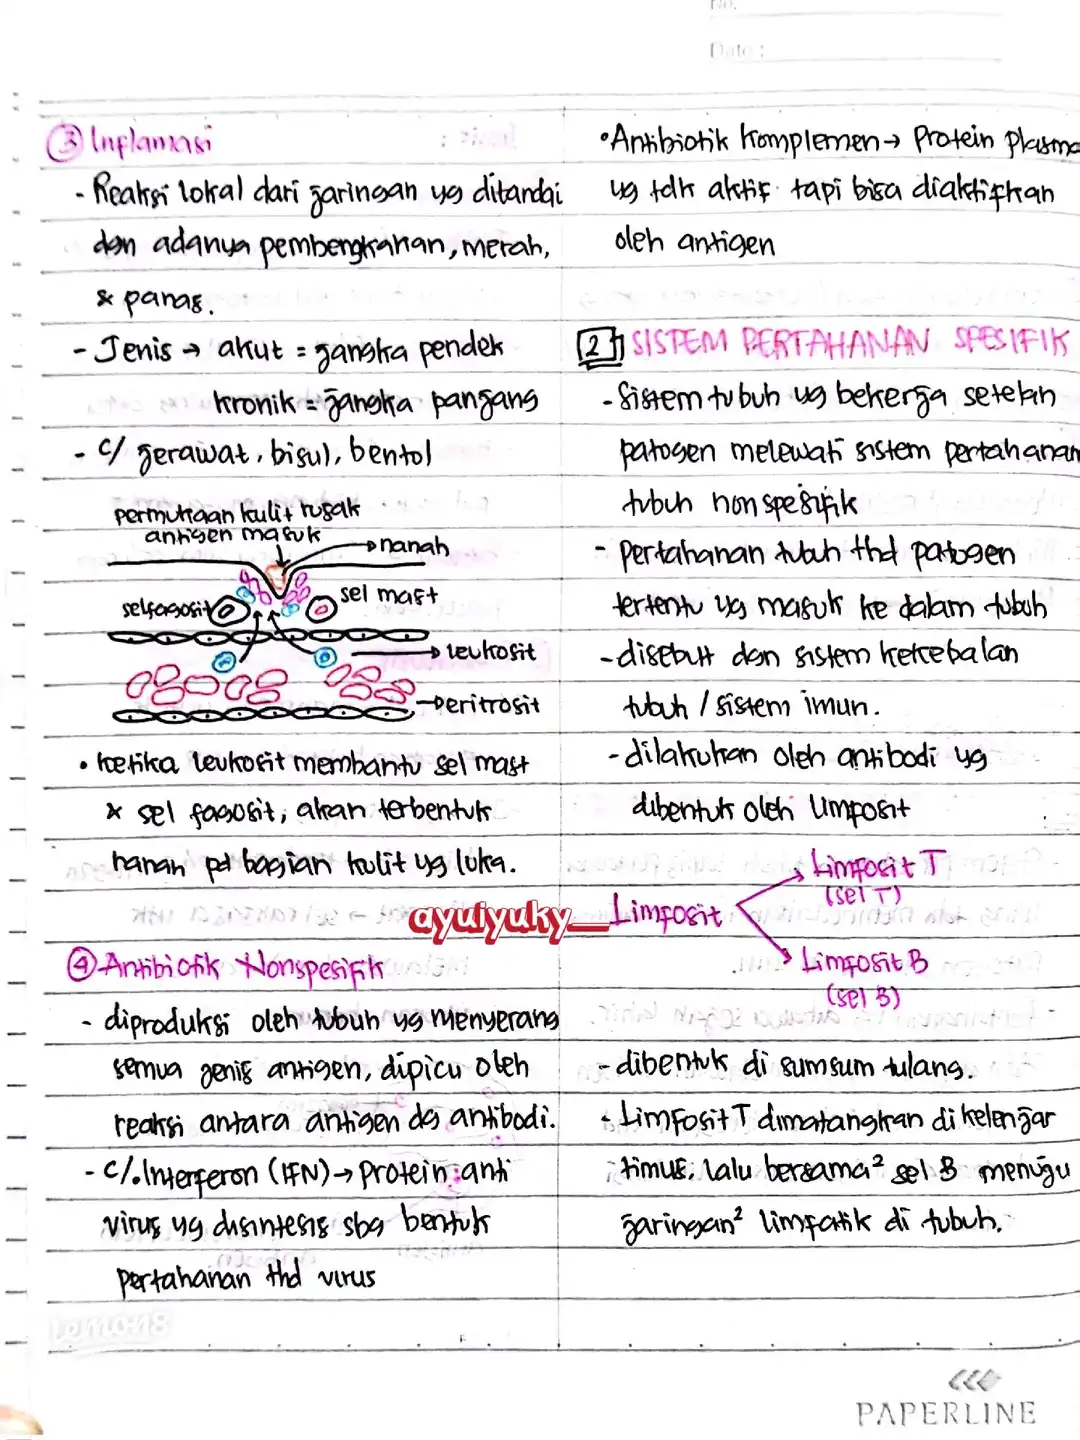 No.
Date :
③ Inflamasi
- Reaksi lokal dari jaringan yg ditandai
dgn adanya pembengkakan, merah,
& panas.
- Jenis → akut = jangka pendek
kronik = jangka panjang
- c/ jerawat, bisul, bentol
permukaan kulit rusak
antigen masuk
nanah
sel fagosit
sel mast
leukosit
eritrosit
• ketika leukosit membantu sel mast
& sel fagosit, akan terbentuk
nanah pd bagian kulit yg luka.
④ Antibiotik Nonspesifik
- diproduksi oleh tubuh yg menyerang
semua jenis antigen, dipicu oleh
reaksi antara antigen dg antibodi.
- c/. Interferon (IFN) → Protein anti
virus yg disintesis sbg bentuk
pertahanan thd virus
• Antibiotik komplemen → Protein plasma
yg tdk aktif tapi bisa diaktifkan
oleh antigen
2 SISTEM PERTAHANAN SPESIFIK
- Sistem tubuh yg bekerja setelah
patogen melewati sistem pertahanan
tubuh nonspesifik
- pertahanan tubuh thd patogen
tertentu yg masuk ke dalam tubuh
- disebut dgn sistem kekebalan
tubuh / sistem imun.
- dilakukan oleh antibodi yg
dibentuk oleh limfosit
Limfosit T
(sel T)
ayuiyuky__
Limfosit
Limfosit B
(sel B)
- dibentuk di sumsum tulang.
- Limfosit T dimatangkan di kelenjar
timus, lalu bersama² sel B menuju
jaringan² limfatik di tubuh.
Lemon8
PAPERLINE